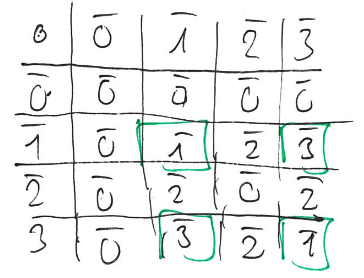 ∘ 0̅ 1̅ 2̅ 3̅
0̅ 0̅ 0̅ 0̅ 0̅
1̅ 0̅ 1̅ 2̅ 3̅
2̅ 0̅ 2̅ 0̅ 2̅
3 0̅ 3̅ 2̅ 1̅